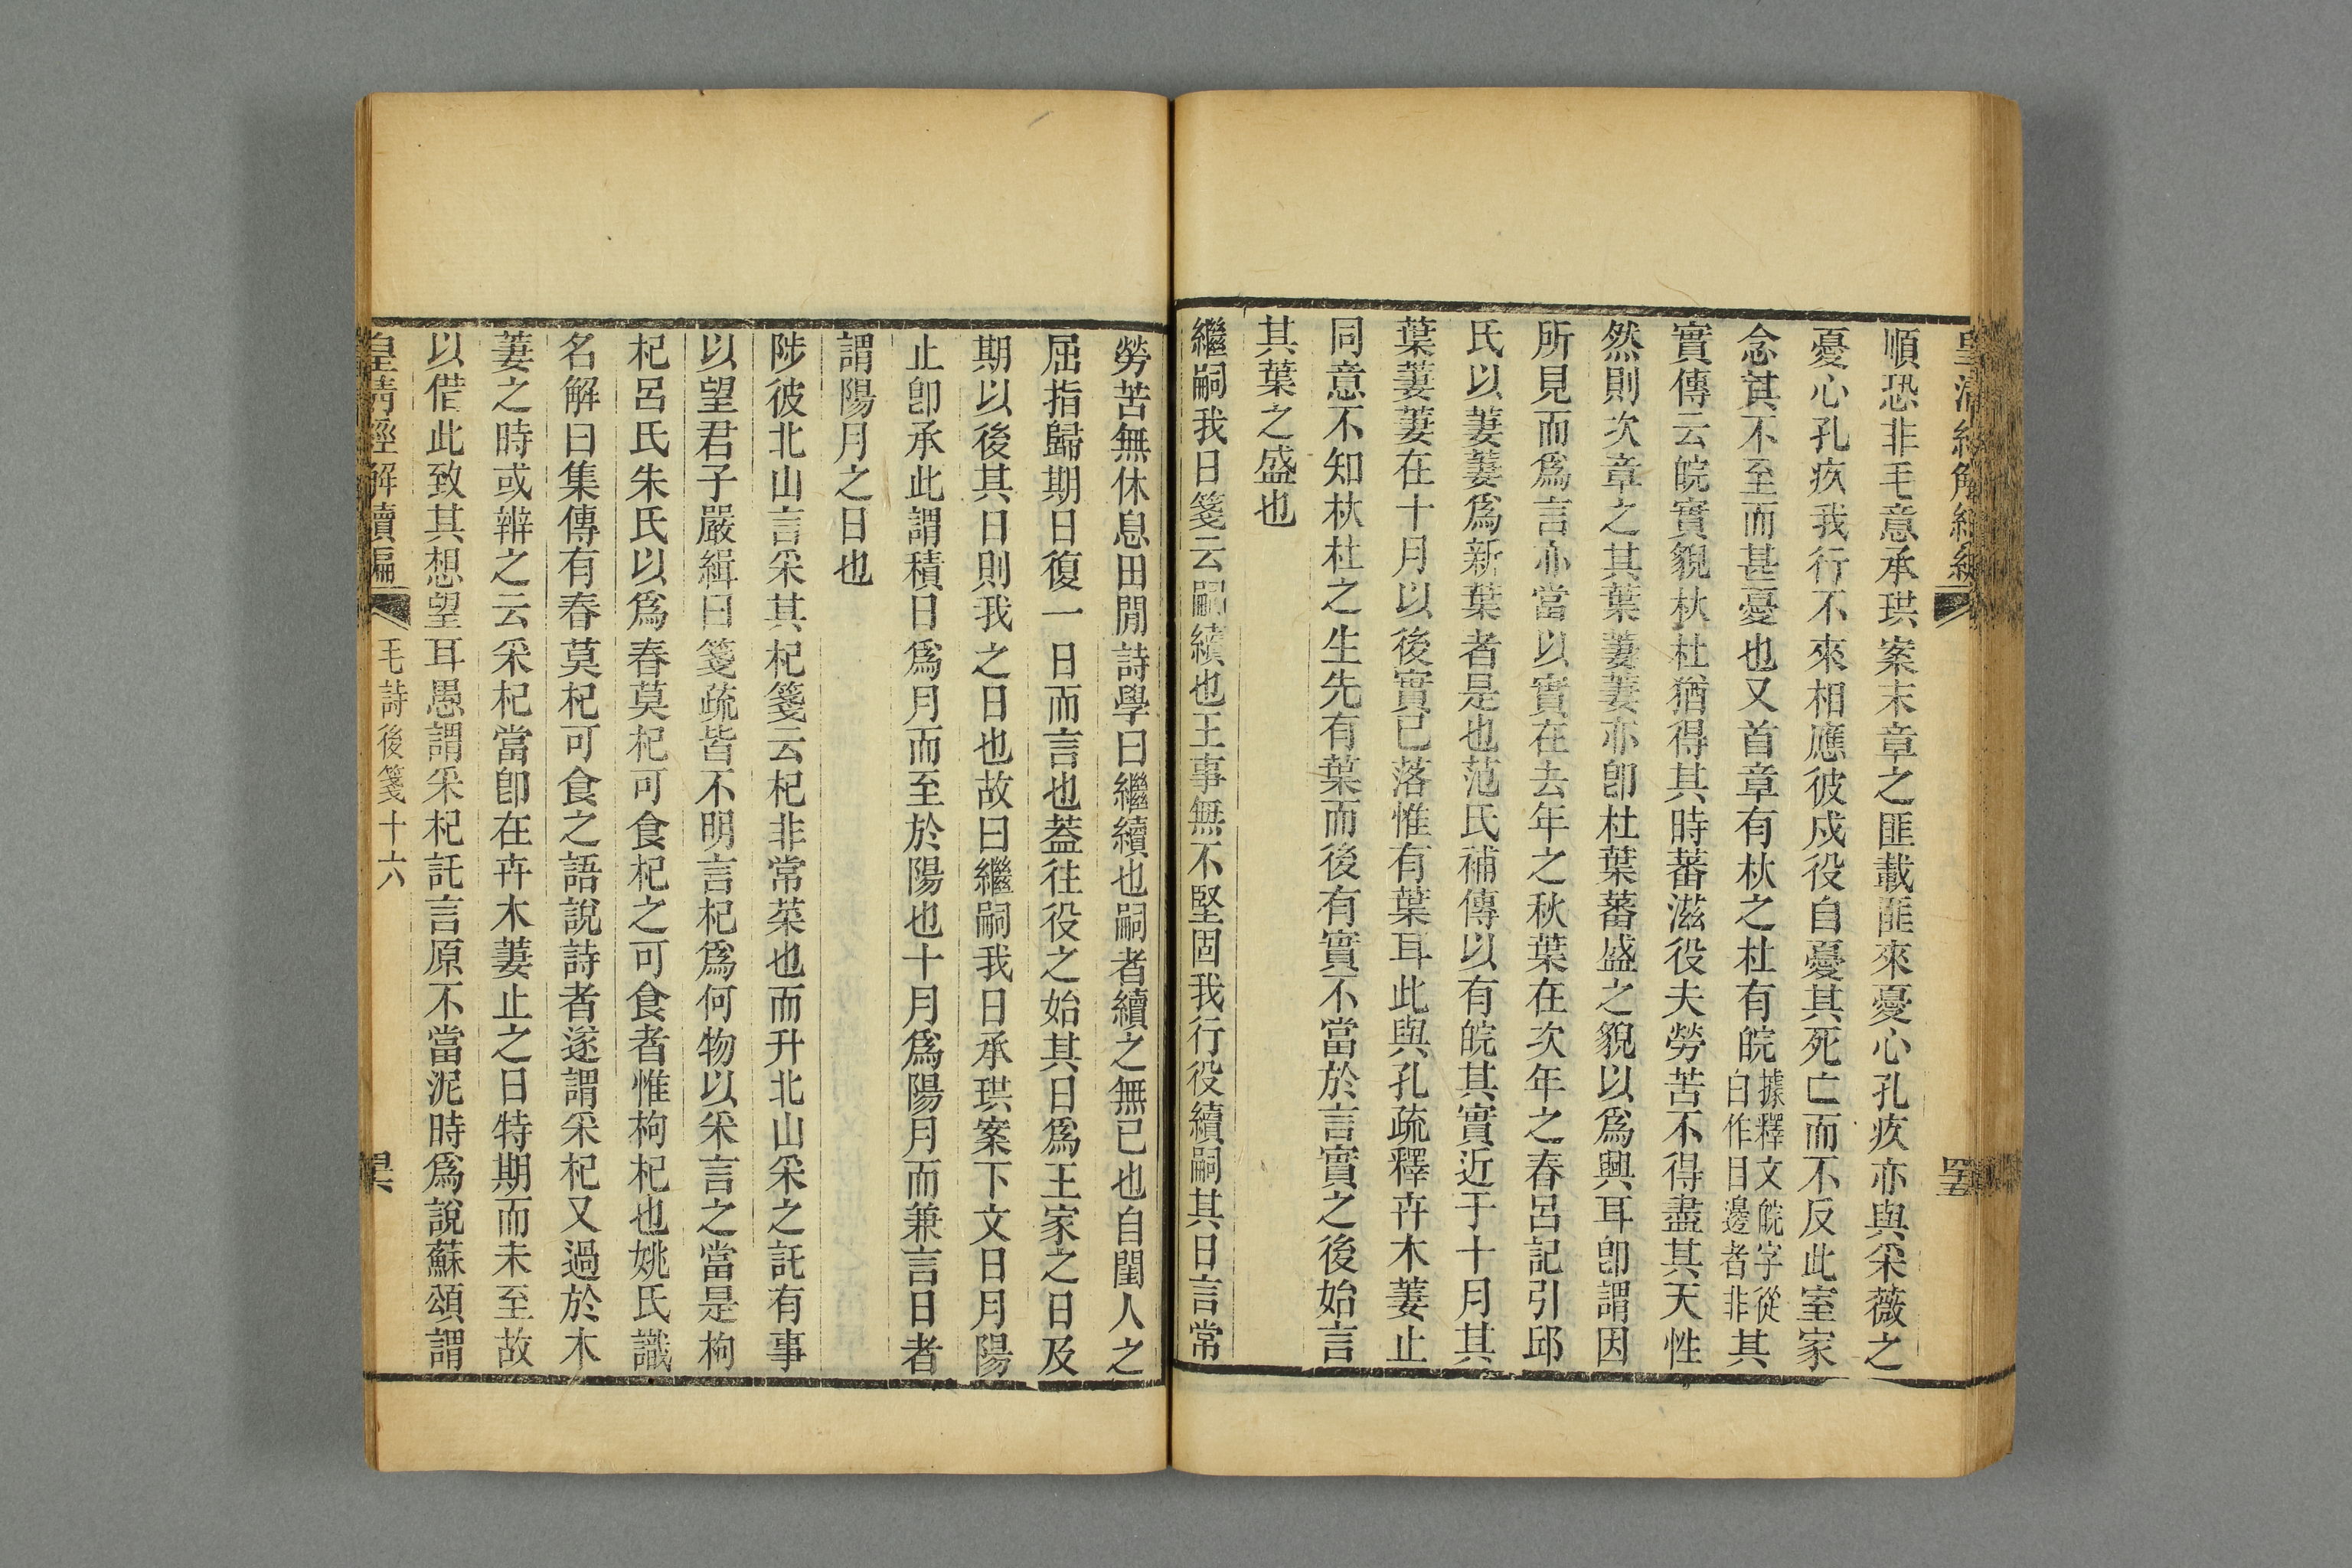 皇清經解續編
順恐非毛意承珙案末章之匪載匪來憂心孔疚亦與采薇之
憂心孔疚我行不來相應彼戍役自憂其死亡而不反此室家
念其不至而甚憂也又首章有杕之杜有睆據釋文睆字從白作日邊者非其
實傳云睆實貌杕杜猶得其時蕃滋役夫勞苦不得盡其天性
然則次章之其葉萋萋亦卽杜葉蕃盛之貌以爲興耳卽謂因
所見而爲言亦當以實在去年之秋葉在次年之春呂記引邱
氏以萋萋爲新葉者是也范氏補傳以有睆其實近于十月其
葉萋萋在十月以後實已落惟有葉耳此與孔疏釋卉木萋止
同意不知杕杜之生先有葉而後有實不當於言實之後始言
其葉之盛也
繼嗣我日箋云嗣續也王事無不堅固我行役續嗣其日言常
勞苦無休息田閒詩學曰繼續也嗣者續之無已也自閨人之
屈指歸期日復一日而言也葢往役之始其日爲王家之日及
期以後其日則我之日也故曰繼嗣我日承珙案下文日月陽
止卽承此謂積日爲月而至於陽也十月爲陽月而兼言日者
謂陽月之日也
陟彼北山言采其杞箋云杞非常菜也而升北山采之託有事
以望君子嚴緝曰箋疏皆不明言杞爲何物以采言之當是枸
杞呂氏朱氏以爲春莫杞可食杞之可食者惟枸杞也姚氏識
名解曰集傳有春莫杞可食之語說詩者遂謂采杞又過於木
萋之時或辨之云采杞當卽在卉木萋止之日特期而未至故
以偕此致其想望耳愚謂采杞託言原不當泥時爲說蘇頌謂
皇清經解續編 毛詩後箋十六